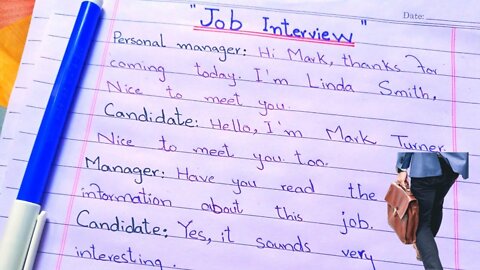 "Job Interview"
Date:
Personal manager: Hi Mark, thanks for
coming today. I'm Linda Smith,
Nice to meet you.
Candidate: Hello, I'm Mark Turner.
Nice to meet you too.
Manager: Have you read the
information about this job.
Candidate: Yes, it sounds very
interesting.